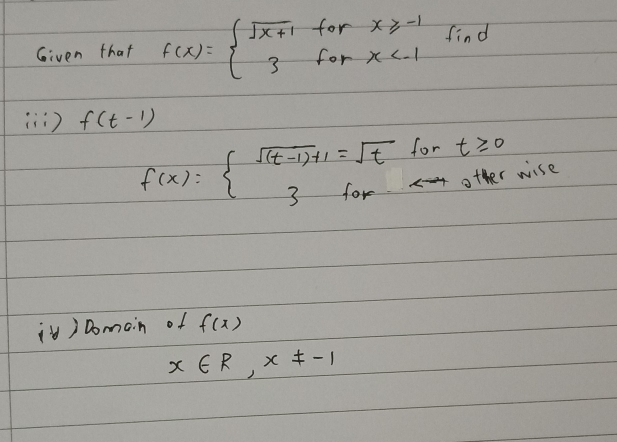 Given that f(x)= { √x+1 for x ≥ -1 find
3 for x < -1
iii) f(t-1)
f(x): { √(t-1)+1 = √t for t ≥ 0
3 for other wise
iv) Domain of f(x)
x ∈ R, x ≠ -1